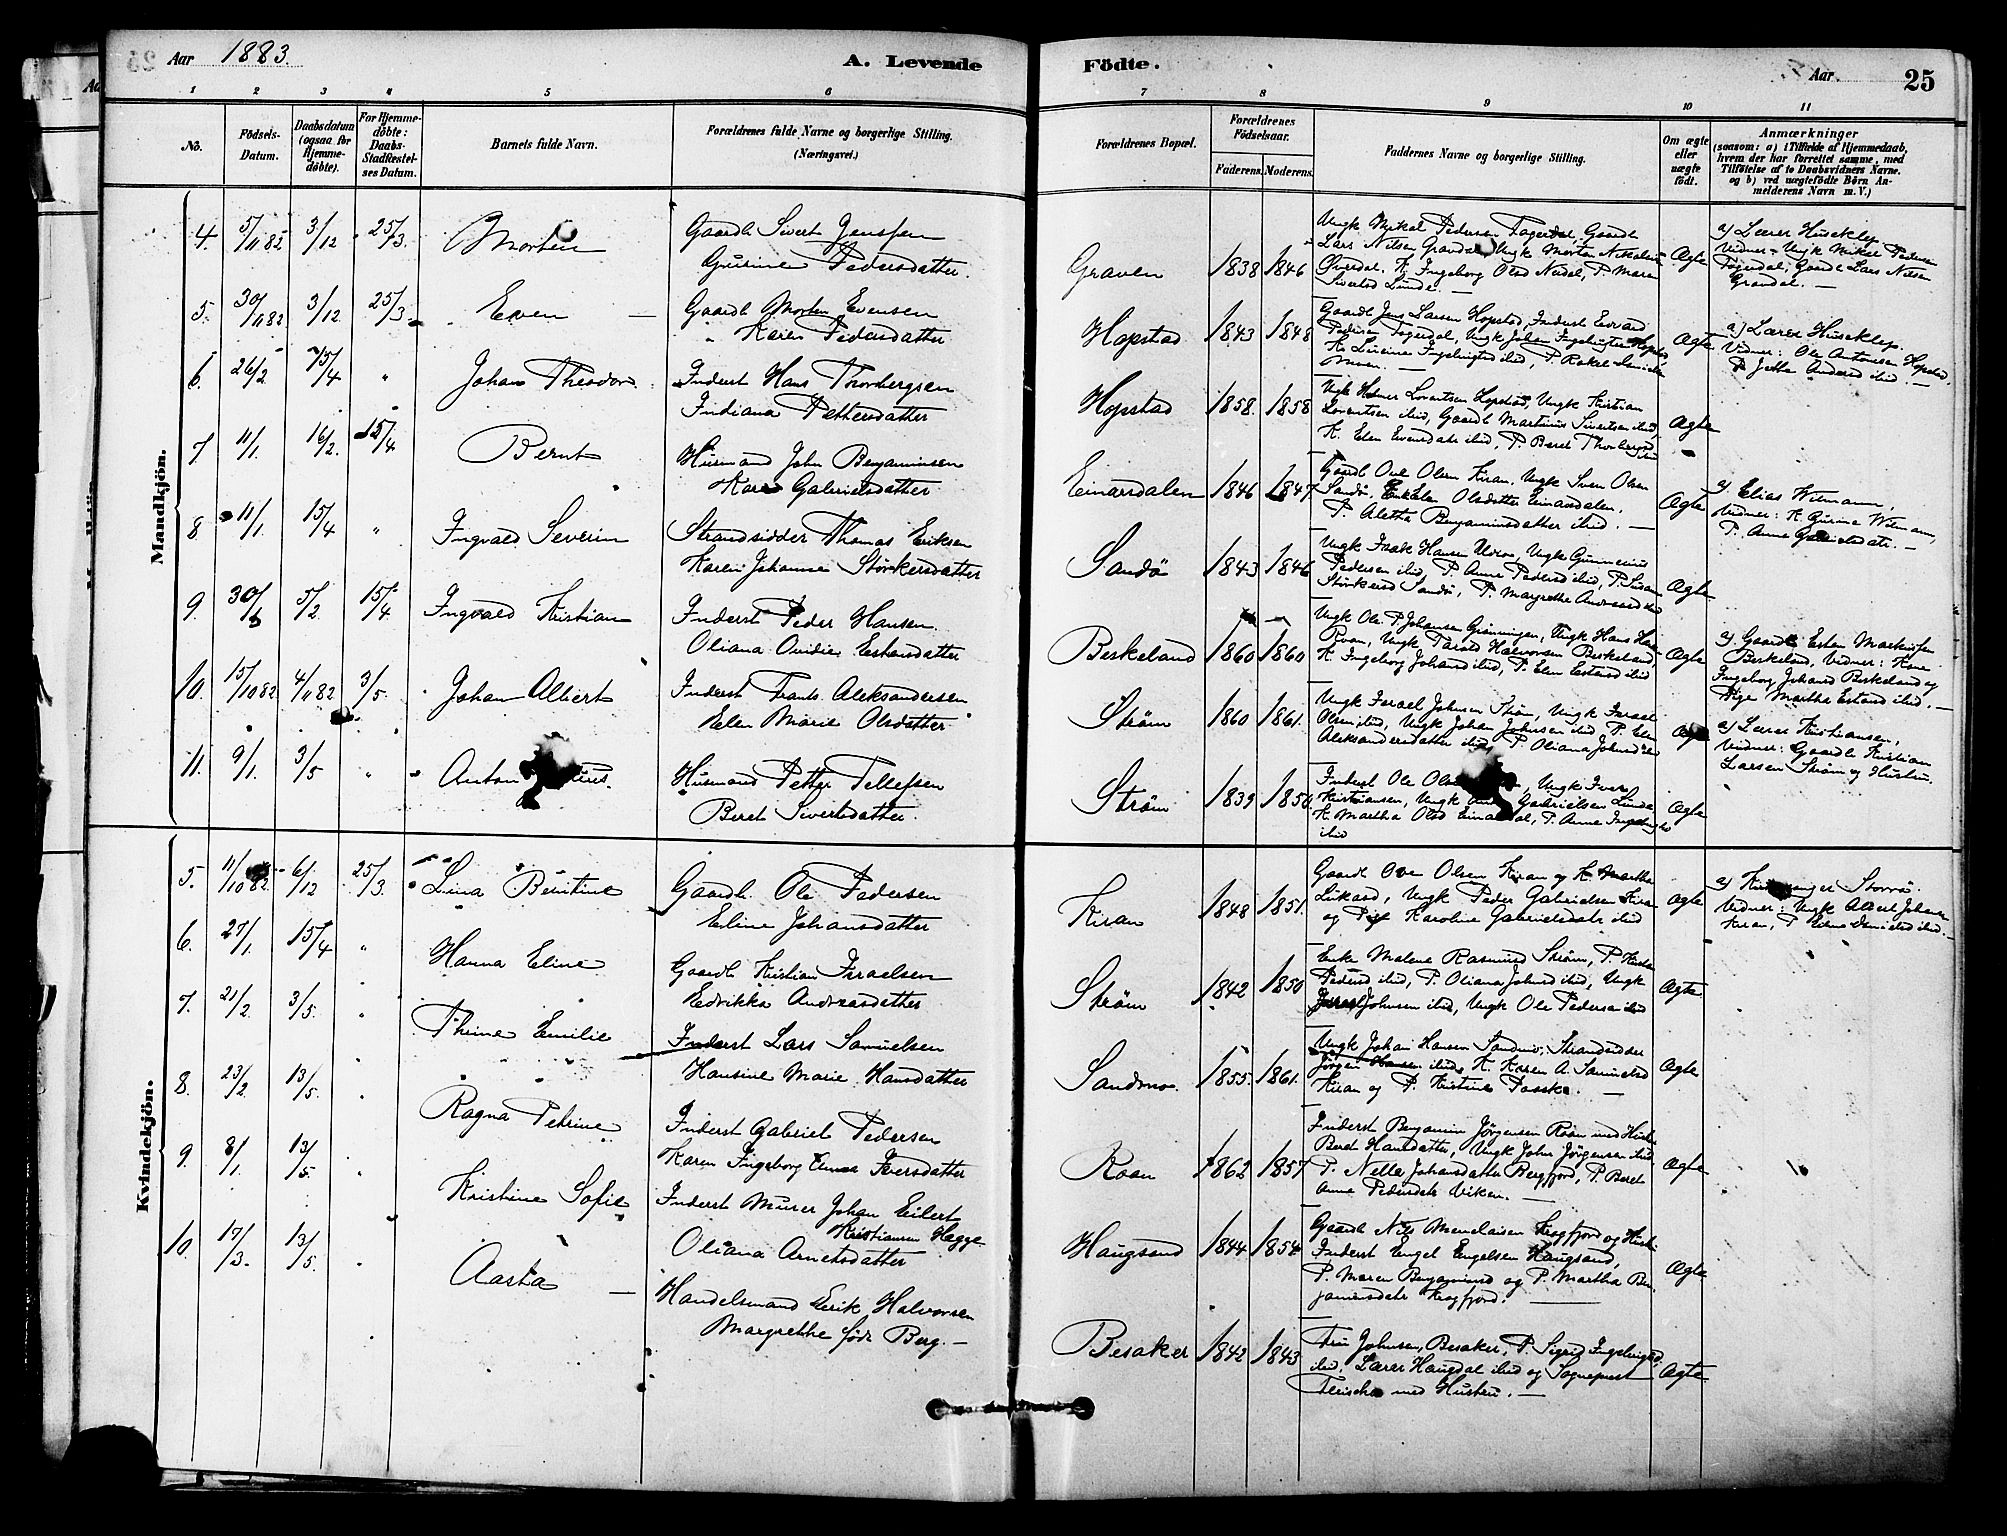 Aar 1883. A. Levende Födte. Aar 25
1 2 3 4 5 6 7 8 9 10 11
No.
Födsels-Datum.
Daabsdatum (ogsaa for Hjemmedöbte).
For Hjemmedöbte: Daabs-Stadfæstelses Datum.
Barnets fulde Navn.
Forældrenes fulde Navne og borgerlige Stilling. (Næringsvei.)
Forældrenes Bopæl.
Forældrenes Födselsaar.
Faderens. Moderens.
Faddernes Navne og borgerlige Stilling.
Om ægte eller uægte födt.
Anmærkninger
(saasom: a) i Tilfælde af Hjemmedaab, hvem der har forrettet samme, med Tilföielse af to Daabsvidners Navne. og b) ved uægtefödte Börn Anmelderens Navn m. V.)
Mandkjön.
4. 5/11 82 3/12 25/3. Morten
Gaardb Sivert Jenssen
Gurine Pedersdatter.
Graven 1838 1846
Ungk Mikal Pedersen Fagerdal, Gaardb
Lars Nilsen Grandal, Ungk Morten
K. Ingeborg Olsd P. Maren
Sivertsd Lunde. —
Ægte
a) Lærer Husekley
Vidner: Ungk Mikal Pedersen
Fagerdal, Gaardb Lars Nilsen
Grandal. —
5. 30/11 82 3/12 25/3. Even —
Gaardb Morten Evensen
" Karen Pedersdatter
Hopstad 1843 1848
Gaardb Jens Larsen Hopstad, Inderst Edvard
Pedersen Fagerdal, Ungk Johan Hopstad
K. ibid, P. Rakel
Ægte
a) Lærer Husekley.
Vidner: Ole Antonsen Hopstad,
P. Jetta Andersd ibid. —
6. 26/2 15/4 " Johan Theodor
Inderst Hans Thorbergsen
Indiana Pettersdatter
Hopstad 1858. 1858
Ungk Lorentsen Hopstad, Ungk Kristian
Lorentsen ibid, Gaardb Martinus Sivertsen ibid,
K. Elen Evensdatr ibid, P. Beret Thorbergsd
Ægte
7 11/1. 16/2. 15/4 Bernt
Husmand John Benjaminsen
Karen Gabrielsdatter
Einarsdalen 1846 1847
Gaardb Ove Olsen Kiran, Ungk Sven Olsen
Sandö, Enke Elen Olsdatter Einarsdalen,
P. Aletha Benjaminsdatter ibid. —
Ægte
a) Elias Wiemann,
Vidner: K. Gurine Wiemann,
P. Anne Gabrielsdatr. —
8 11/1. 15/4 " Ingvald Severin
Strandsidder Thomas Eriksen
Karen Johanne Störkersdatter
Sandö 1843 1846
Ungk Isak Hansen Ungk
Pedersen ibid, P. Anne Pedersd ibid, P. Susan
Störkersd Sandö, P. Margrethe Andreasd
Ægte
9. 30/ 5/2 15/4 Ingvald Kristian
Inderst Peder Hansen
Oliana Ovidia Estensdatter
Beskeland 1860 1860
Ungk Ole P. Johansen Grönningen, Ungk Hans
Roan, Ungk Halvorsen Beskeland,
K. Ingeborg Johansd ibid, P. Elen Estensd ibid
Ægte
a) Gaardb Esten
Beskeland, Vidner: Kone
Ingeborg Johansd Beskeland og
Pige Martha Estensd ibid. —
10. 15/10 82 4/11 82 3/5 Johan Albert
Inderst Frants Aleksandersen
Elen Marie Olsdatter
Ström 1860 1861.
Ungk Israel Johnsen Ström, Ungk Israel
Olsen ibid, Ungk Johan Johnsen ibid, P. Elen
Aleksandersdatter ibid, P. Oliana Johnsd
Ægte
a) Lærer Kristiansen,
Vidner: Gaardb Kristian
Larsen Ström og Hustru.
11. 9/1. 3/5 " Anton
Husmand Petter Tellefsen
Beret Sivertsdatter.
Ström 1839
Inderst Ole Ungk Iver
Kristiansen, Ungk Gabrielsen Lunde
K. Martha Olsd P. Anne
ibid
Ægte
Kvindekjön.
5. 11/10 82 6/12 25/3. Lina Berntine
Gaardb Ole Pedersen
Eline Johansdatter
Kiran 1848 1851.
Gaardb Ove Olsen Kiran og K. Martha
Ungk Peder Gabrielsen Kiran
og Pige Karoline Gabrielsdatr ibid
Ægte
a) Kirkesanger Storrö.
Vidner: Ungk Albert Johans
Kiran, P. ibid. —
6. 27/1. 15/4 " Hanna Eline
Gaardb Kristian Israelsen
Edrikka Andreasdatter
Ström 1842 1850
Enke Malene Rasmusd Ström, P.
Pedersd ibid, P. Oliana Johnsd ibid, Ungk
Israel Johnsen ibid, Ungk Ole Pedersen ibid
Ægte
7. 21/2. 3/5. " Thrine Emilie
Inderst Lars Samuelsen
Hansine Marie Hansdatter
Sandmo 1855. 1861.
Ungk Johan Hansen Sandmo, Strandsidder
Jörgen Hansen ibid, K. Karen A. Samuelsd
Kiran og P. Kristine Paaske. —
Ægte
8. 23/2 13/5. " Ragna Petrine
Inderst Gabriel Pedersen
Karen Ingeborg Anna Iversdatter
Roan 1862 1857
Inderst Benjamin Jörgensen Roan med Hustr
Beret Hansdatter, Ungk John Jörgensen ibid
P. Nella Johansdatter Bergfjord, P. Beret
Anne Pedersdatr Viken. —
Ægte
9. 8/1 13/5. " Kristine Sofie
Inderst Murer Johan Eilert
Kristiansen Hegge
Oliana Arnetsdatter
Haugsand 1844 1854
Gaardb Nils Krogfjord og Hustr
Inderst Engel Engelsen Haugsand,
P. Maren Benjaminsd og P. Martha Ben
jaminsdatr Krogfjord. —
Ægte
10. 17/3. 13/5. " Aasta —
Handelsmand Erik Halvorsen
Margrethe født Berg. —
Besaker 1842 1843
Fru Johnsen, Besaker, P. Sigrid
ibid, Lærer Haugdal ibid og Sognepræst
Fleischer med Hustru. —
Ægte.